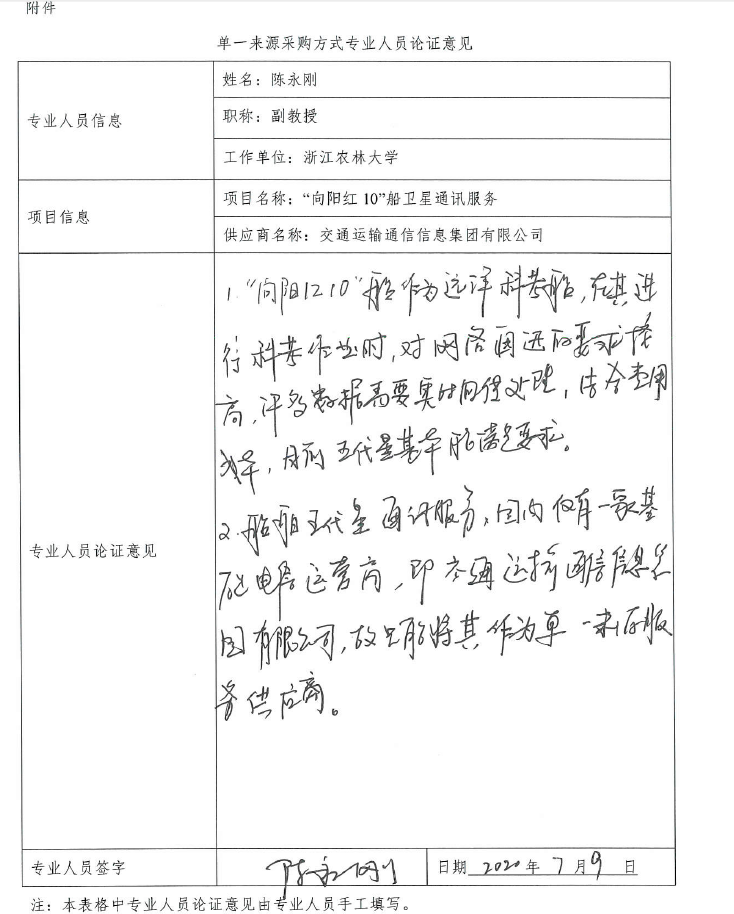 附件
单一来源采购方式专业人员论证意见
专业人员信息
姓名：陈永刚
职称：副教授
工作单位：浙江农林大学
项目信息
项目名称：“向阳红 10”船卫星通讯服务
供应商名称：交通运输通信信息集团有限公司
专业人员论证意见
1. “向阳红10”船作为远洋科考船，在其进
行科考作业时，对网络通迅的要求
高，许多数据需要实时回传处理，
目前五代星基本能满足要求。
2. 船舶五代星通讯服务，国内仅有一家基
础电信运营商，即交通运输通信信息集
团有限公司，故只能将其作为单一来源服
务供应商。
专业人员签字
陈永刚
日期 2020 年 7 月 9 日
注：本表格中专业人员论证意见由专业人员手工填写。